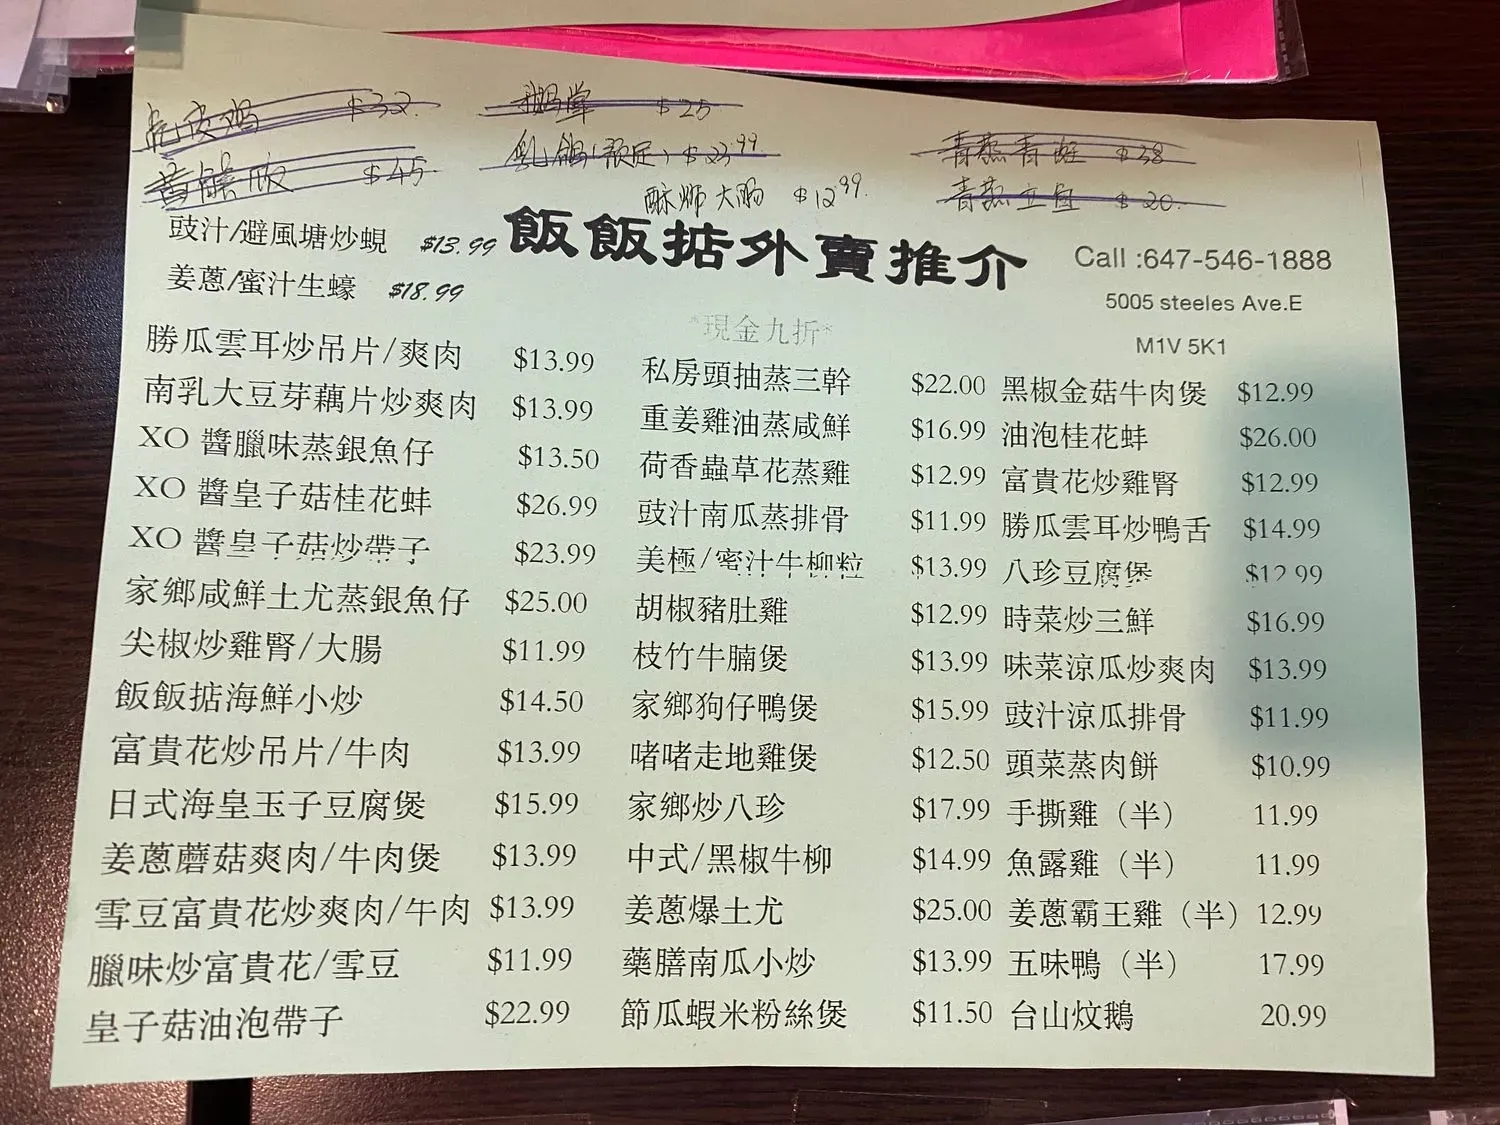 $32
$25
乳鴿(預定) $23.99
$38
$45
酥炸大腸 $12.99
$20
豉汁/避風塘炒蜆 $13.99
姜蔥/蜜汁生蠔 $18.99
飯飯掂外賣推介
Call :647-546-1888
5005 steeles Ave.E
M1V 5K1
*現金九折*
勝瓜雲耳炒吊片/爽肉 $13.99
南乳大豆芽藕片炒爽肉 $13.99
XO 醬臘味蒸銀魚仔 $13.50
XO 醬皇子菇桂花蚌 $26.99
XO 醬皇子菇炒帶子 $23.99
家鄉咸鮮土尤蒸銀魚仔 $25.00
尖椒炒雞腎/大腸 $11.99
飯飯掂海鮮小炒 $14.50
富貴花炒吊片/牛肉 $13.99
日式海皇玉子豆腐煲 $15.99
姜蔥蘑菇爽肉/牛肉煲 $13.99
雪豆富貴花炒爽肉/牛肉 $13.99
臘味炒富貴花/雪豆 $11.99
皇子菇油泡帶子 $22.99
私房頭抽蒸三幹 $22.00
重姜雞油蒸咸鮮 $16.99
荷香蟲草花蒸雞 $12.99
豉汁南瓜蒸排骨 $11.99
美極/蜜汁牛柳粒 $13.99
胡椒豬肚雞 $12.99
枝竹牛腩煲 $13.99
家鄉狗仔鴨煲 $15.99
啫啫走地雞煲 $12.50
家鄉炒八珍 $17.99
中式/黑椒牛柳 $14.99
姜蔥爆土尤 $25.00
藥膳南瓜小炒 $13.99
節瓜蝦米粉絲煲 $11.50
黑椒金菇牛肉煲 $12.99
油泡桂花蚌 $26.00
富貴花炒雞腎 $12.99
勝瓜雲耳炒鴨舌 $14.99
八珍豆腐煲 $12.99
時菜炒三鮮 $16.99
味菜涼瓜炒爽肉 $13.99
豉汁涼瓜排骨 $11.99
頭菜蒸肉餅 $10.99
手撕雞（半） 11.99
魚露雞（半） 11.99
姜蔥霸王雞（半） 12.99
五味鴨（半） 17.99
台山炆鵝 20.99